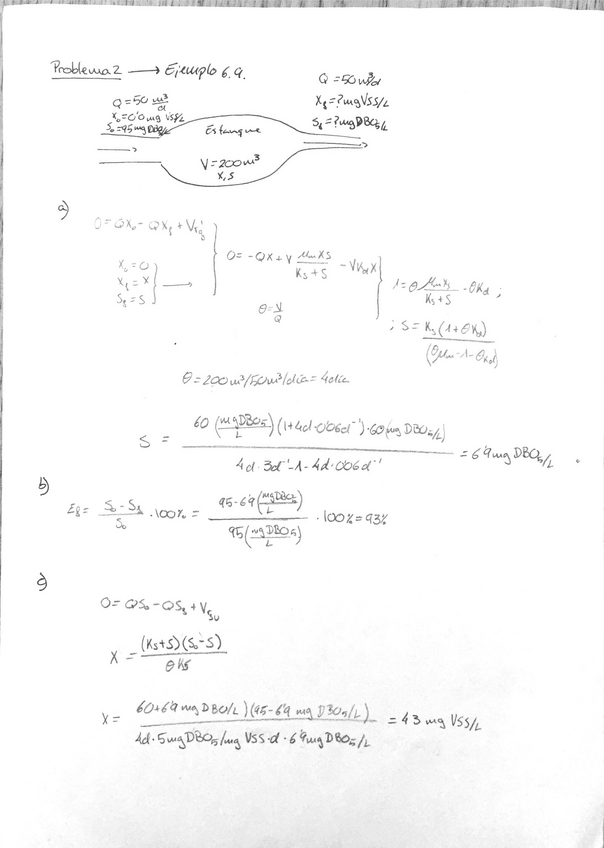 Problema 2 → Ejemplo 6.9.
Q = 50 m³/d
X₀ = 0'0 mg VSS/L
S₀ = 95 mg DBO₅/L
Estanque
V = 200 m³
X, S
Q = 50 m³/d
Xf = ? mg VSS/L
Sf = ? mg DBO₅/L
a)
0 = QX₀ - QXf + V
X₀ = 0
Xf = X
Sf = S
0 = -QX + V (μm XS)/(Ks + S) - VKdX
θ = V/Q
1 = θ (μm XS)/(Ks + S) - θKd ;
; S = Ks (1 + θKd)/(θμm - 1 - θKd)
θ = 200 m³/50 m³/día = 4 día
S = 60 (mg DBO₅/L) (1 + 4d · 0'06 d⁻¹) · 60 (mg DBO₅/L) / 4d · 3d⁻¹ - 1 - 4d · 0'06 d⁻¹ = 6'9 mg DBO₅/L
b)
Ef = (S₀ - Sf)/S₀ · 100% = 95 - 6'9 (mg DBO₅/L) / 95 (mg DBO₅/L) · 100% = 93%
c)
0 = QS₀ - QSf + V
X = (Ks + S)(S₀ - S) / θKS
X = 60 + 6'9 mg DBO/L)(95 - 6'9 mg DBO₅/L) / 4d · 5 mg DBO₅/mg VSS · d · 6'9 mg DBO₅/L = 43 mg VSS/L